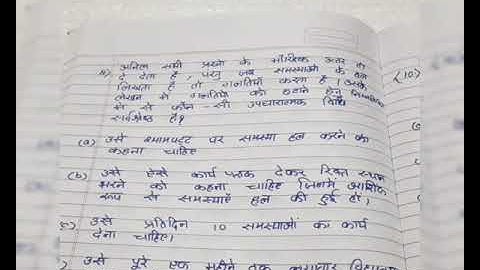 5) अनिल सभी प्रश्नों के मौखिक उत्तर तो
दे देता है, परंतु जब समस्याओं के हल
लिखता है तो गलतियाँ करता है। उसके
लेखन से गलतियों को हटाने हेतु निम्नलिखित
में से कौन-सी उपचारात्मक विधि
सर्वश्रेष्ठ है?
(a) उसे श्यामपट्ट पर समस्या हल करने को
कहना चाहिए
(b) उसे ऐसे कार्य पत्रक देकर रिक्त स्थान
भरने को कहना चाहिए जिनमें आंशिक
रूप से समस्याएँ हल की हुई हो।
उसे प्रतिदिन 10 समस्याओं का कार्य
देना चाहिए।
उसे पूरे एक महीने तक लगातार
(10)